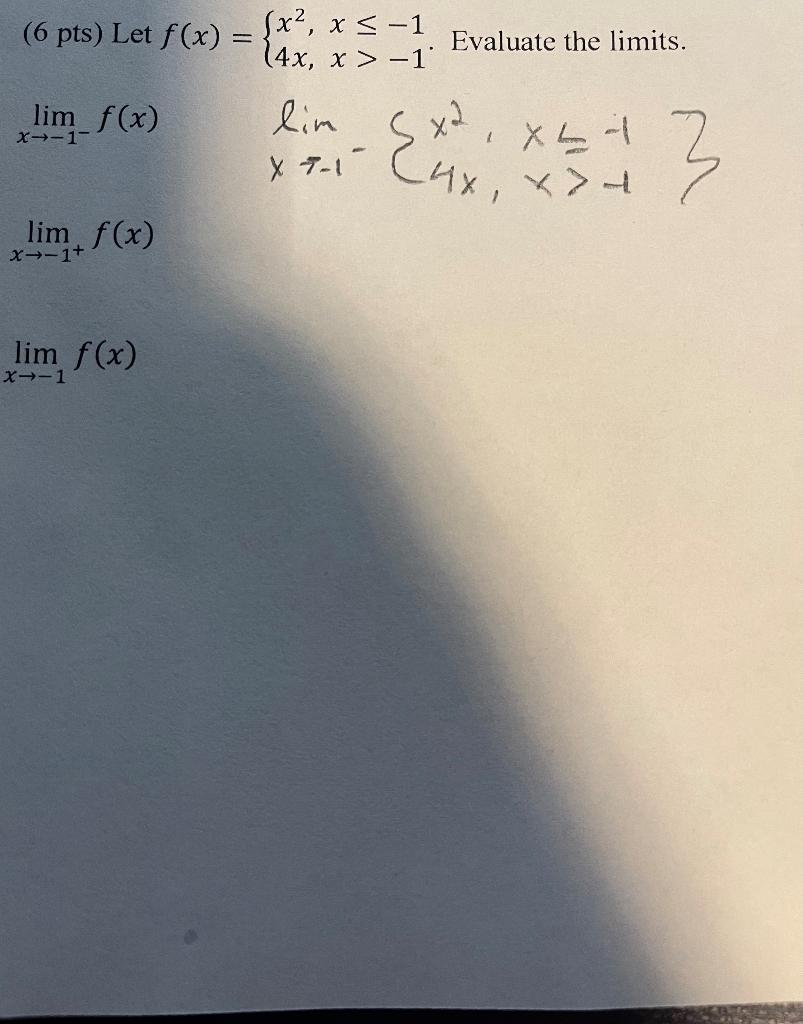 (6 pts) Let f(x) = {x², x ≤ −1
4x, x > −1. Evaluate the limits.
lim x→−1⁻ f(x)
lim x→-1⁻ {x², x ≤ -1
4x, x > -1}
lim x→−1⁺ f(x)
lim x→−1 f(x)